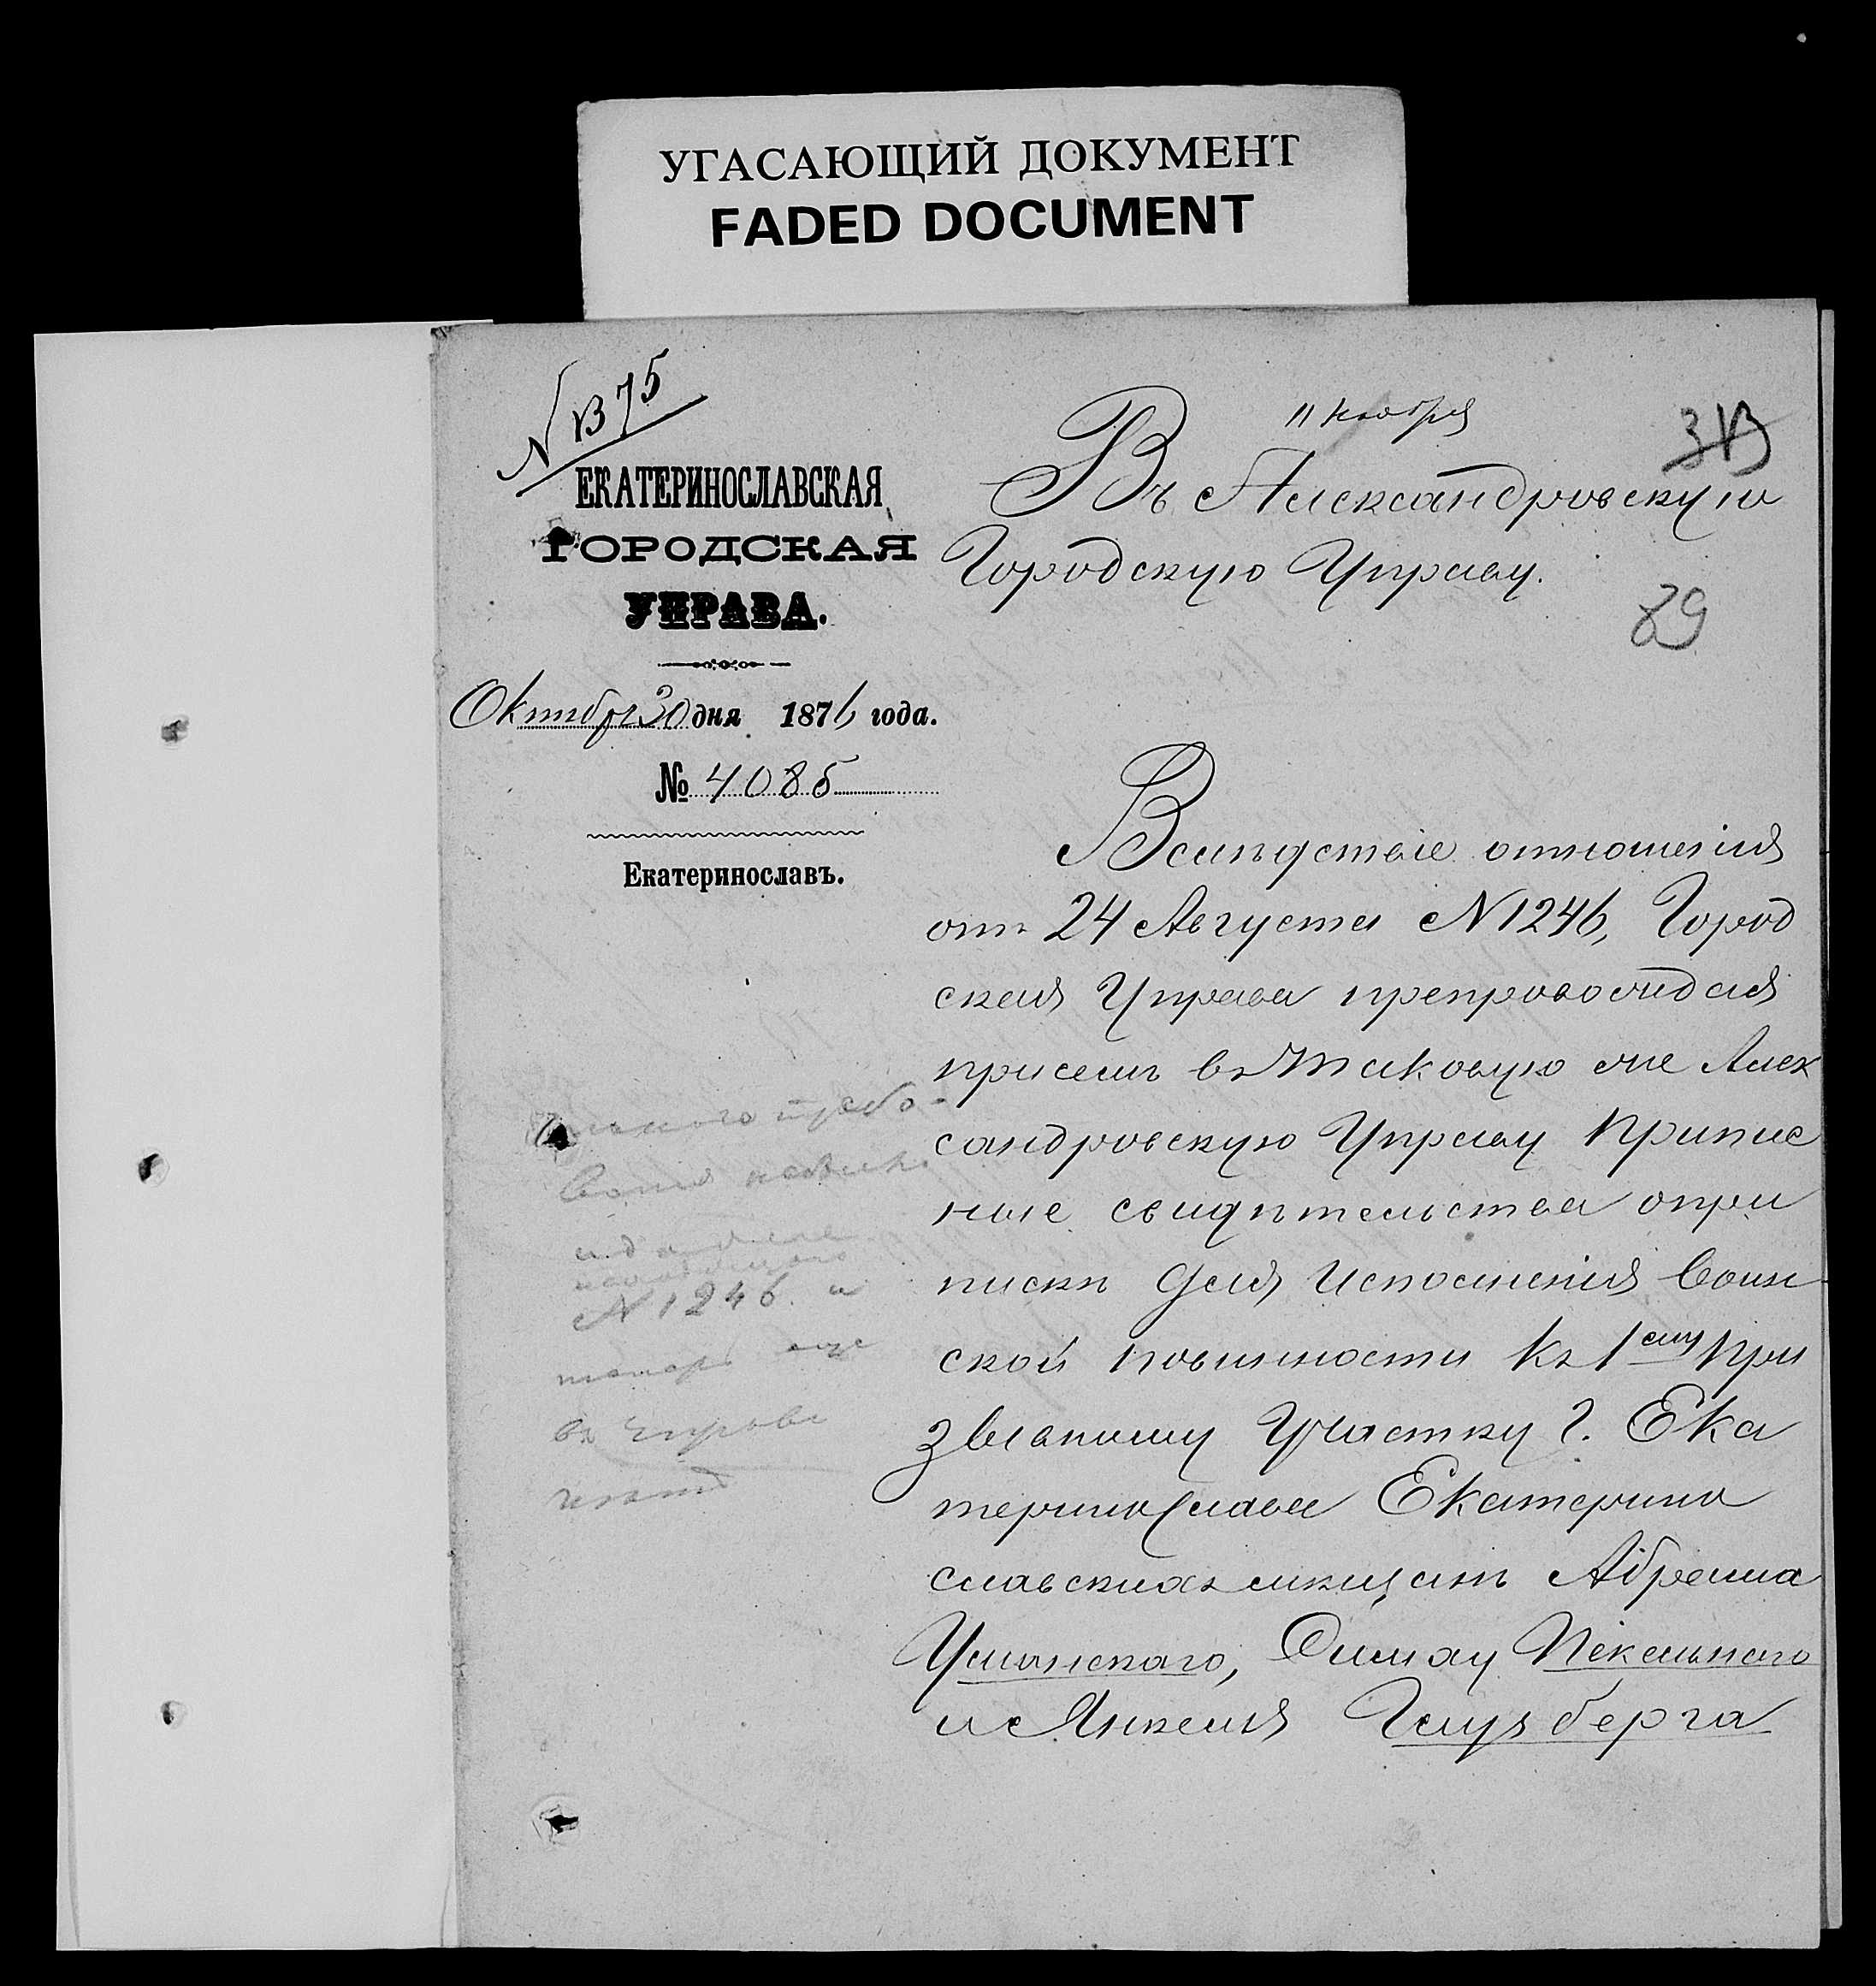 УГАСАЮЩИЙ ДОКУМЕНТ
FADED DOCUMENT
11 ноября
ЕКАТЕРИНОСЛАВСКАЯ
ГОРОДСКАЯ
УПРАВА.
Октября 30 дня 1876 года.
№ 4085
Екатеринославъ.
Въ Александровскую
Городскую Управу.
89
Вслѣдствіе отношенія
отъ 24 Августа N 1246, Город
ская Управа препровождая
присемъ въ таковую же Алек
сандровскую Управу Припис
ные свидѣтельства опри
пискѣ для Исполненія Воин
ской повинности Къ 1ему При
зывному Участку г. Ека
теринослава Екатерино
славскихъ мѣщанъ Абрама
Уманскаго, Пекельнаго
и Янкеля Гинзберга
требо-
N 1246. и
въ управе